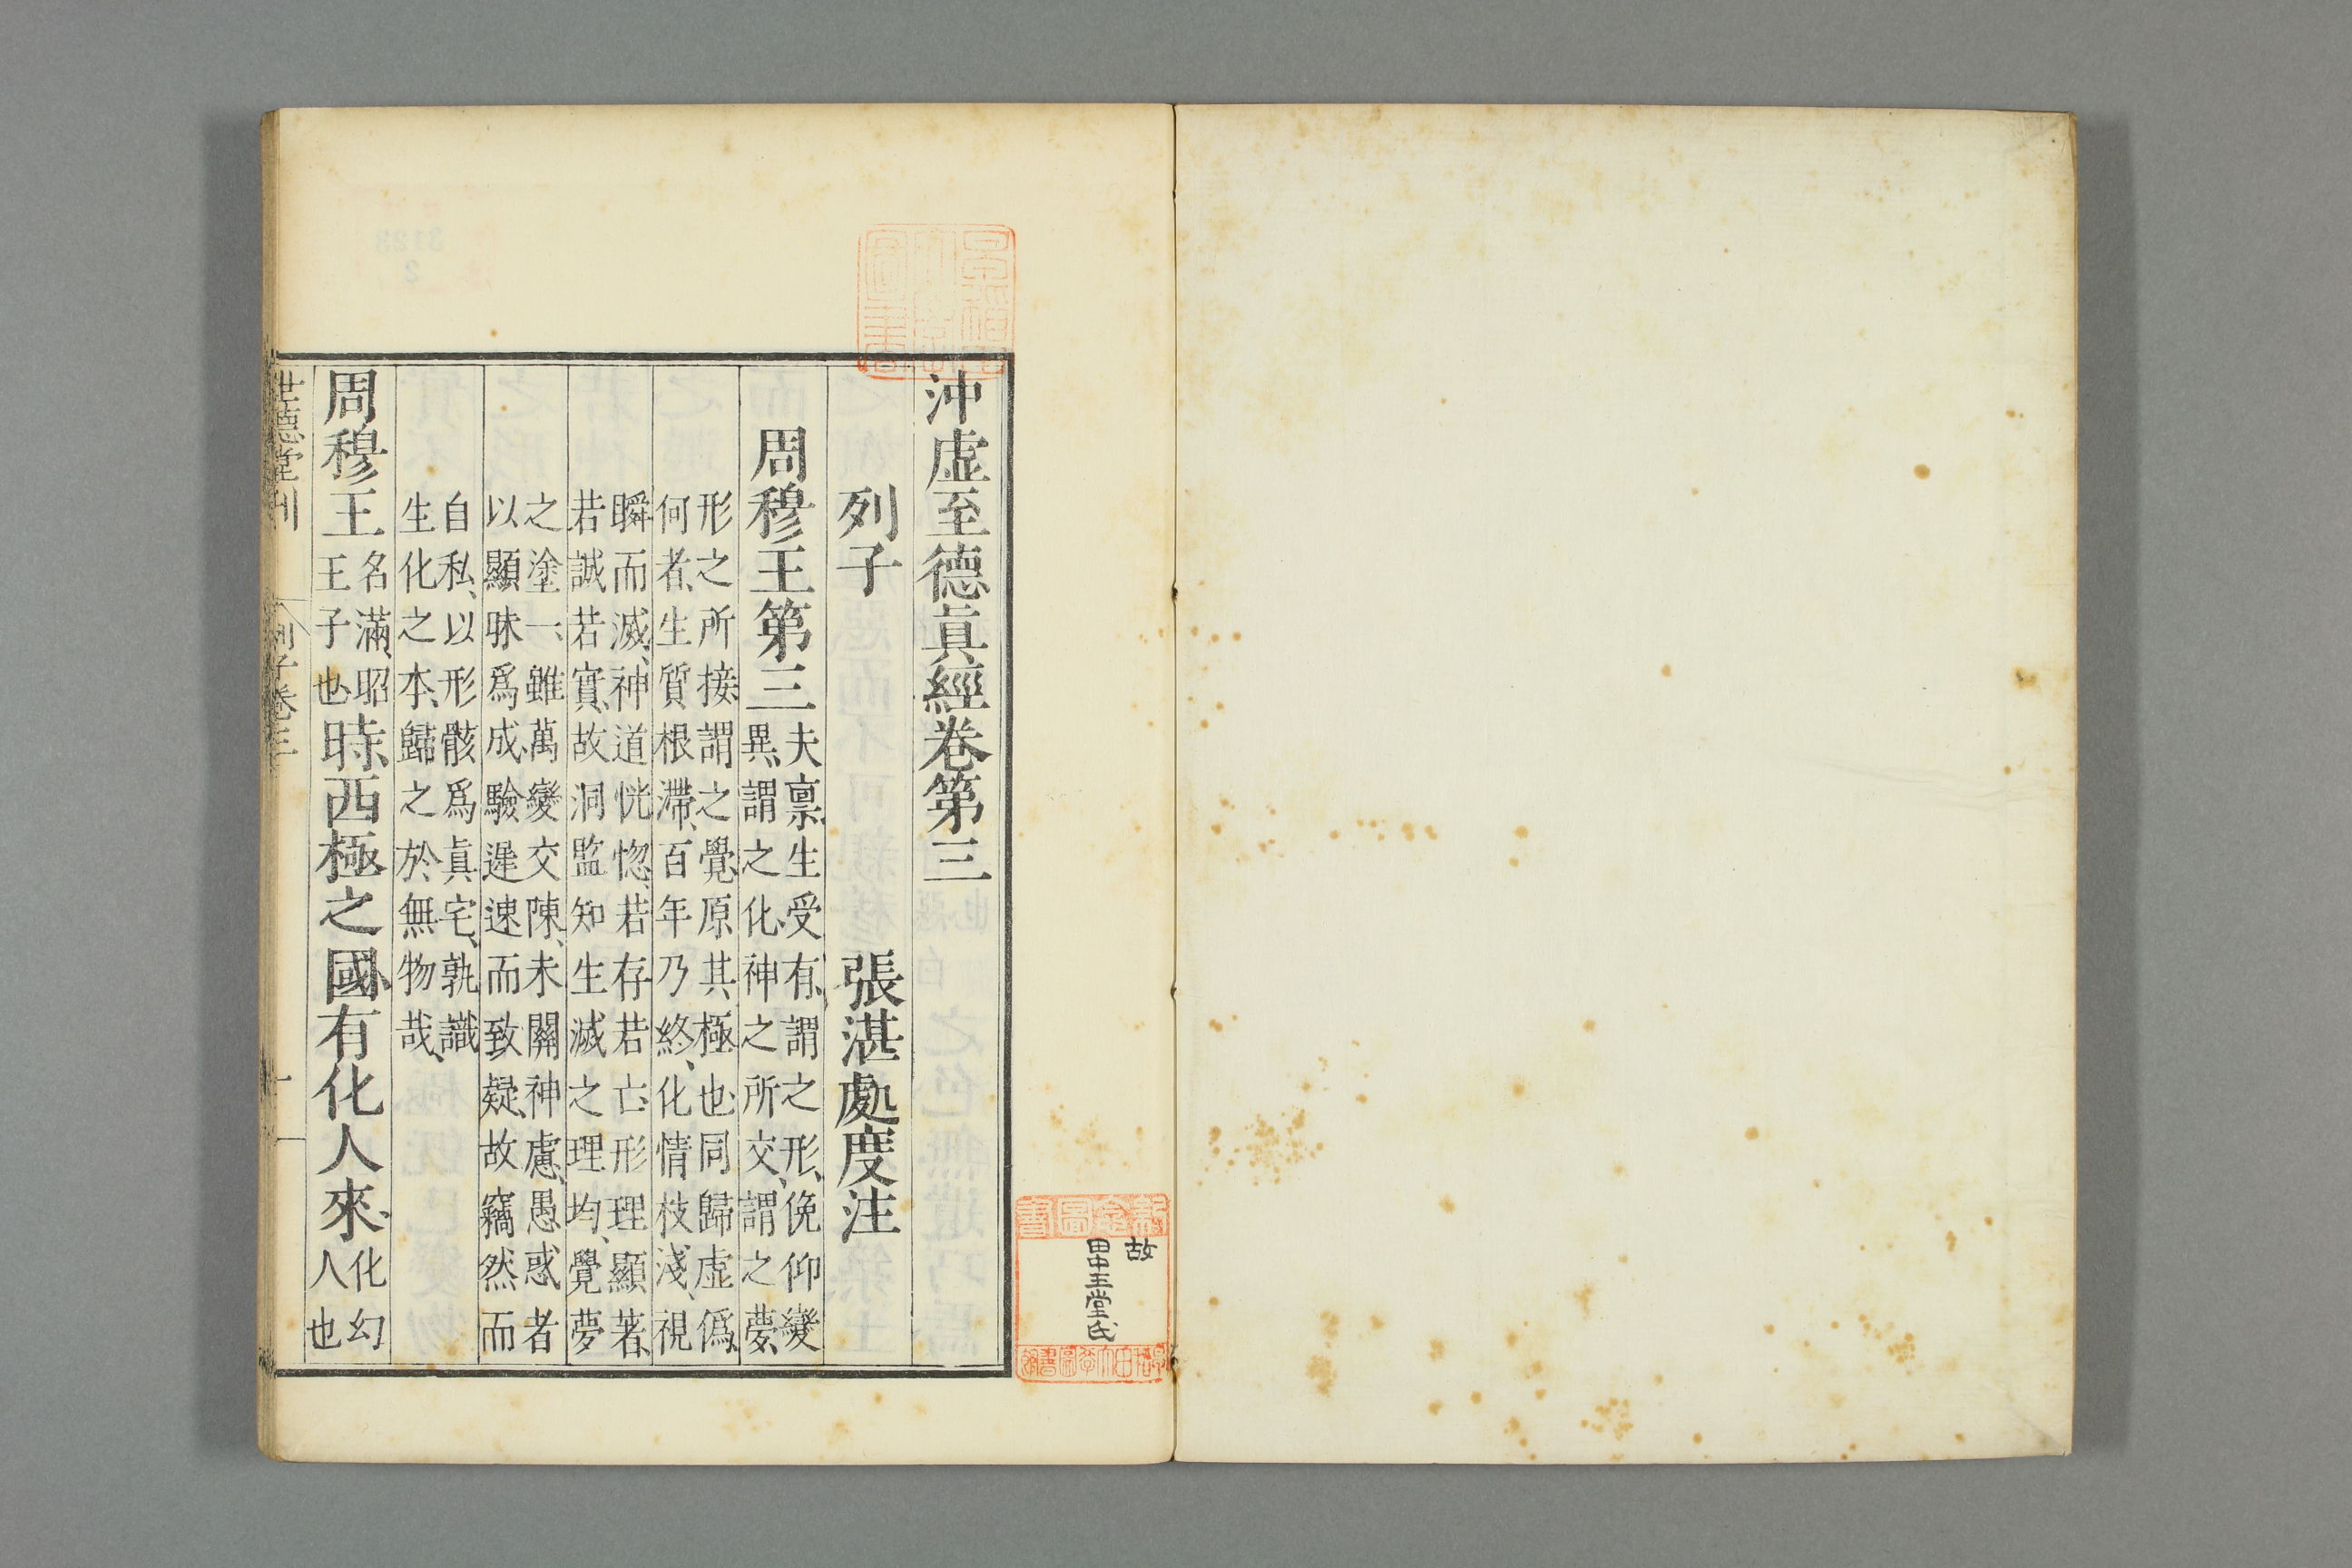 沖虛至德眞經卷第三
列子　張湛處度注
周穆王第三
夫禀生受有、謂之形、俛仰變
異、謂之化、神之所交、謂之夢、
形之所接、謂之覺、原其極也、同歸虛僞、
何者、生質根滯、百年乃終、化情枝淺、視
瞬而滅、神道恍惚、若存若亡、形理顯著、
若誠若實、故洞監知生滅之理均、覺夢
之塗一、雖萬變交陳、未關神慮、愚惑者
以顯昧爲成驗、遲速而致疑、故竊然而
自私、以形骸爲眞宅、孰識
生化之本、歸之於無物哉、
周穆王
名滿、昭
王子也
時、西極之國、有化人來、
化幻
人也
世德堂刊
列子卷三
一
故
田中玉堂氏